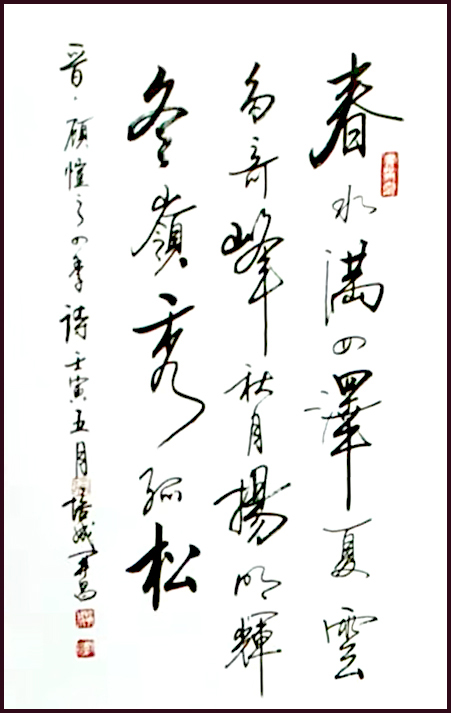 春水满四澤夏雲
多奇峰秋月揚明輝
冬嶺秀孤松
晋·顾愷之四季诗壬寅五月培成書